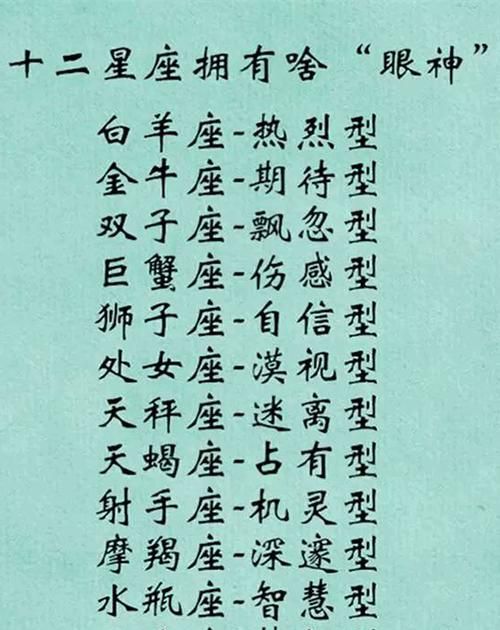 十二星座拥有啥“眼神”
白羊座-热烈型
金牛座-期待型
双子座-飘忽型
巨蟹座-伤感型
狮子座-自信型
处女座-漠视型
天秤座-迷离型
天蝎座-占有型
射手座-机灵型
摩羯座-深邃型
水瓶座-智慧型